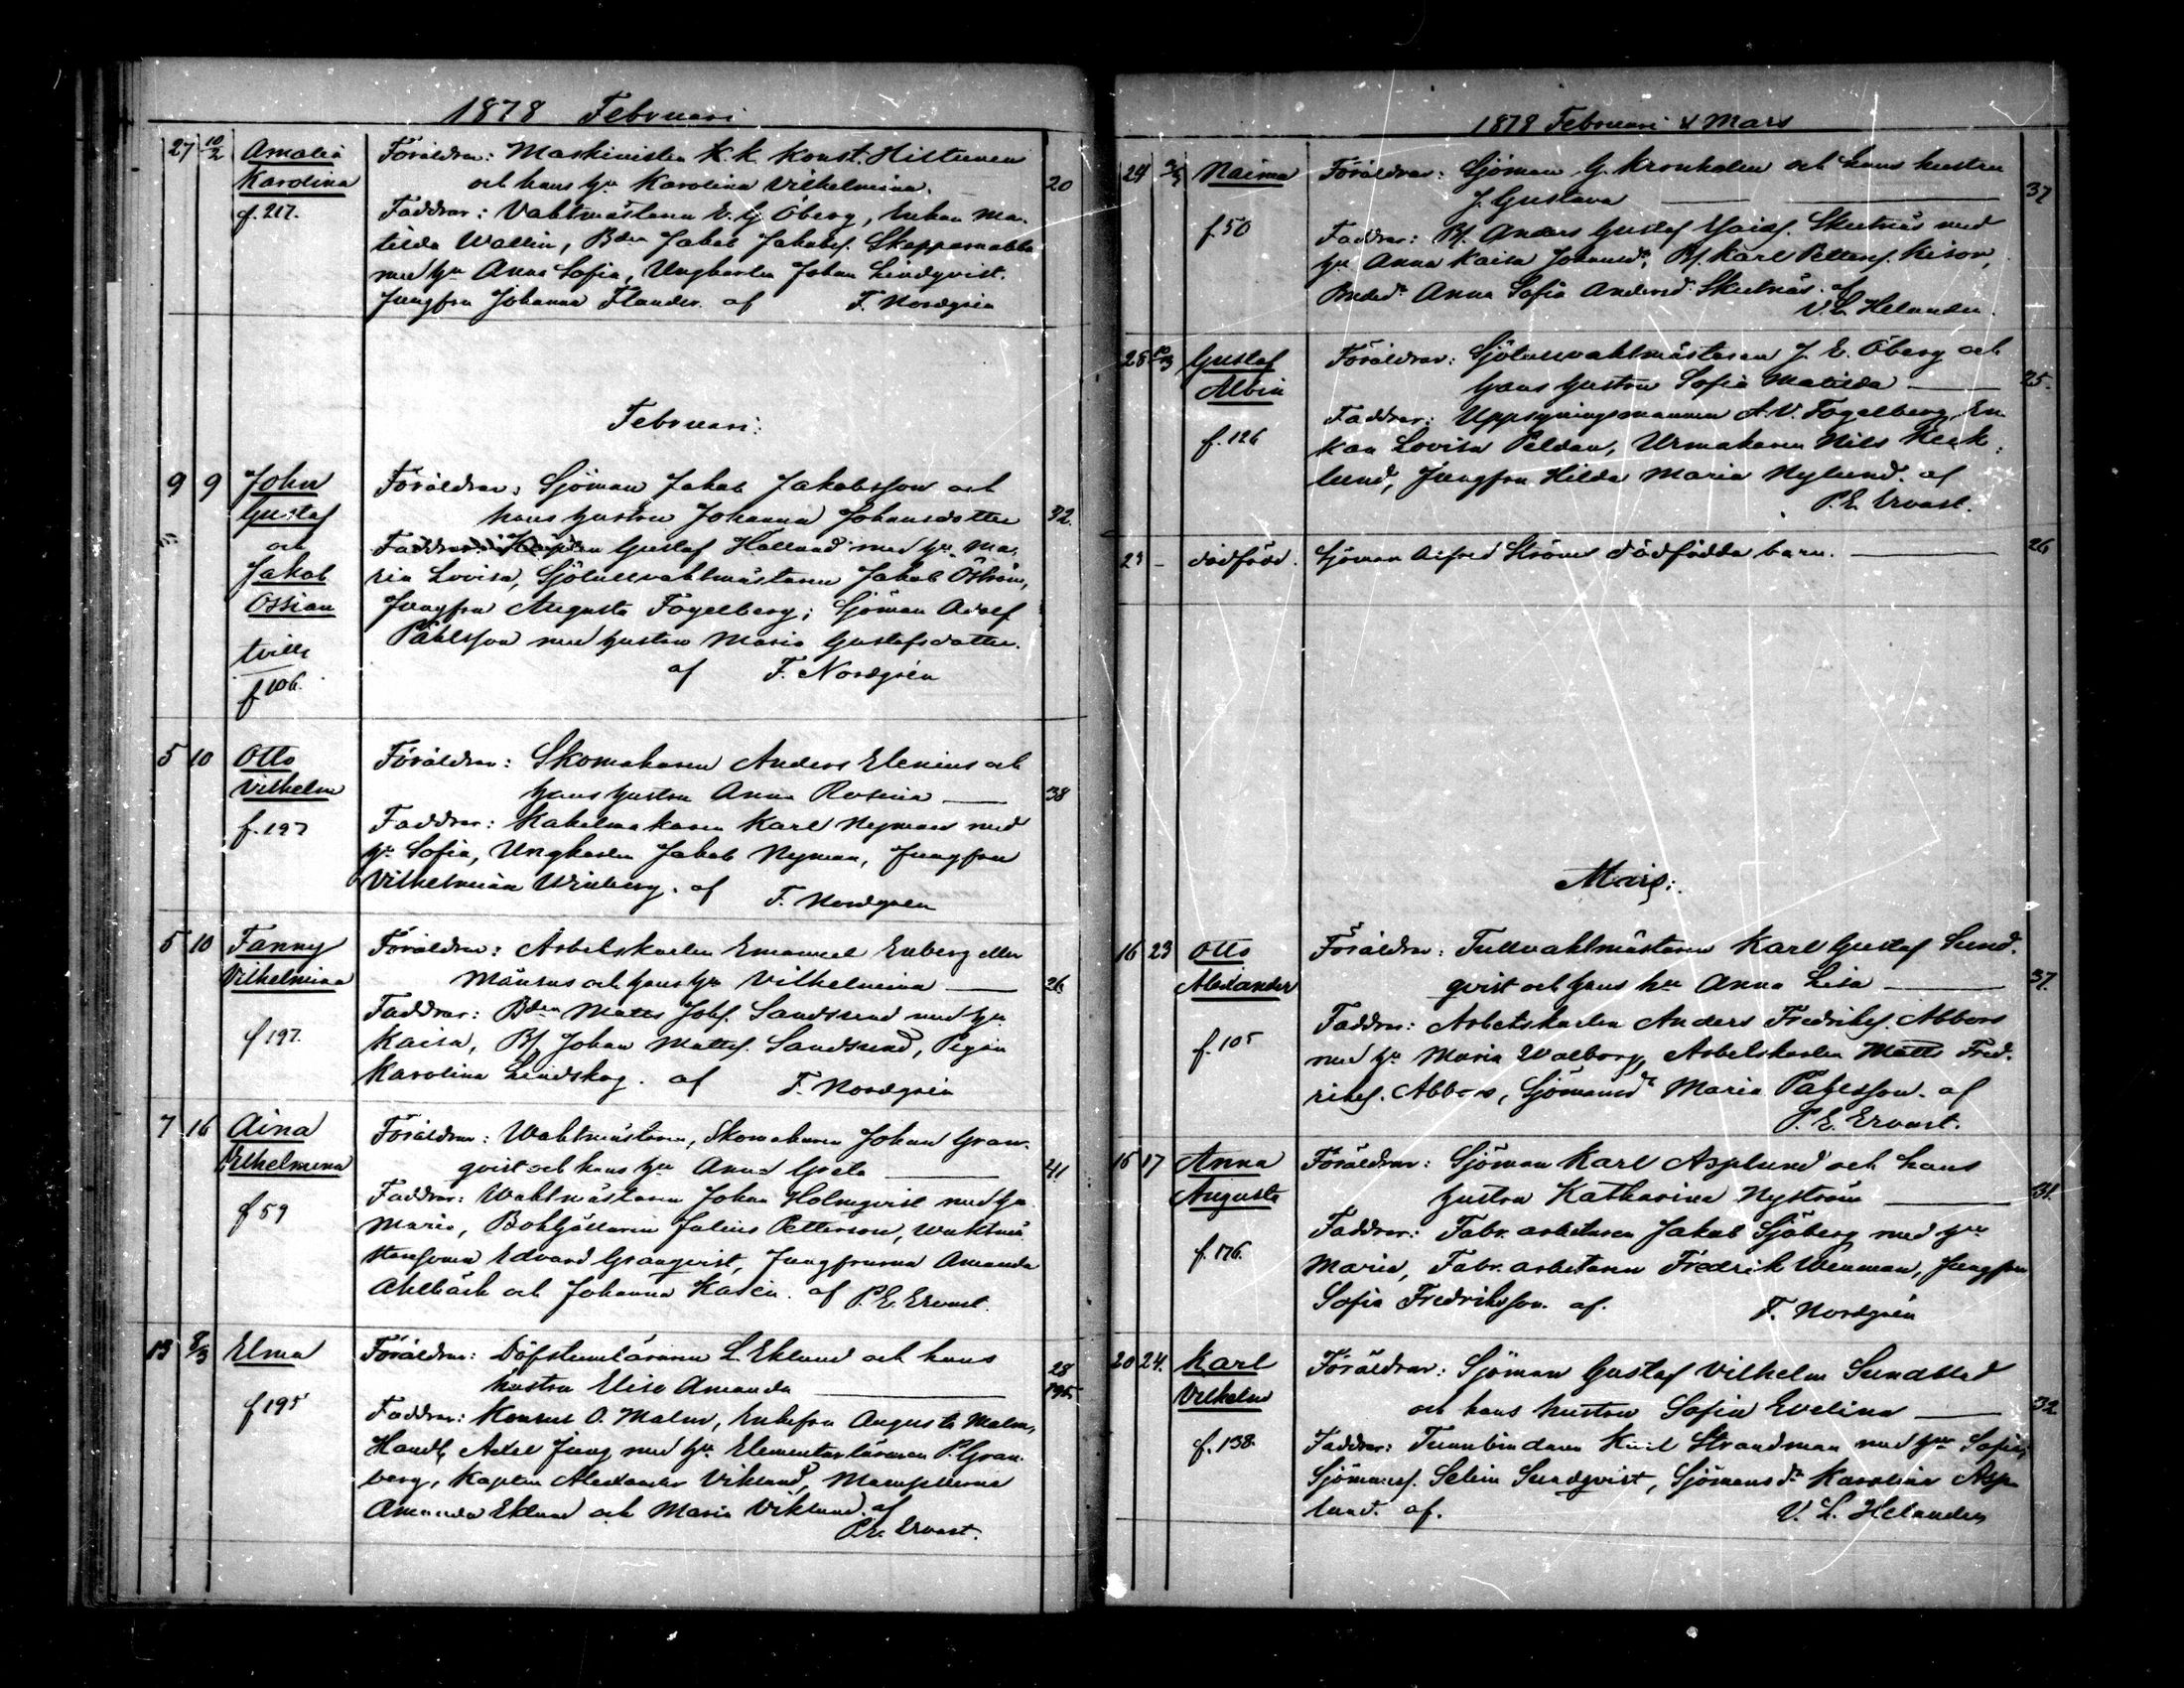 1878 Februari
27 10/2 Amalia Föräldrar: Maskinisten K. K. Konst. Hiltunen
Karolina och hans hu Karolina Vilhelmina. 20
f. 217. Faddrar: Vaktmästaren E. G. Öberg, Enkan Ma-
tilda Wallin, Bden Jakob Jakobsf. Skepparnabba
med hu Anna Sofia, Ungkarlen Johan Lindqvist.
Jungfru Johanna Flander. af F. Nordgrén
Februari:
9 9 John Föräldrar: Sjöman Jakob Jakobsson och
Gustaf hans hustru Johanna Johansdotter 32.
och Faddrar: Kapten Gustaf Hallund med hu Ma-
Jakob ria Lovisa, Sjötullvaktmästaren Jakob Öström,
Ossian Jungfru Augusta Fogelberg; Sjöman Adolf
Påhlsson med hustru Maria Gustafsdotter.
tvill: af F. Nordgrén
f 106.
5 10 Otto Föräldrar: Skomakaren Anders Elenius och
Vilhelm hans hustru Anna Rosina 38
f. 197 Faddrar: Kakelmakaren Karl Nyman med
hu Sofia, Ungkarlen Jakob Nyman, Jungfru
Vilhelmina Wieberg. af F. Nordgrén
5 10 Fanny Föräldrar: Arbetskarlen Emanuel Enberg eller
Vilhelmina Månsus och hans hu Vilhelmina 26
Faddrar: Bden Matts Johs. Sandsund med hu
f 197. Kaisa, Bs. Johan Mattsf. Sandsund, Pigan
Karolina Lindskog. af F. Nordgrén
7 16 Aina Föräldrar: Waktmästaren, Skomakaren Johan Gran-
Vilhelmina qvist och hans hu Anna Greta 41
f 59 Faddrar: Waktmästaren Johan Holmqvist med hu
Maria, Bokhållaren Julius Petterson, Waktmä-
starssonen Edvard Granqvist, Jungfrurna Amanda
Ahlbäck och Johanna Kasén. af P. E. Ervast.
13 8/3 Elma Föräldrar: Döfstumläraren L. Eklund och hans 28
hustru Elise Amanda 195
f 195 Faddrar: Konsul O. Malm, Enkefru Augusta Malm,
Handl. Axel Jung med hu Elementarläraren P. Gran-
berg, Kapten Alexander Viklund, Mamsellerna
Amanda Eklund och Maria Viklund. af
P. E. Ervast.
1878 Februari & Mars
24 9/3 Naima Föräldrar: Sjöman G. Kronholm och hans hustru
J. Gustava 37
f. 50 Faddrar: Bs. Anders Gustaf Skutnäs med
hu Anna Kaisa Bs. Karl Petters.
Anna Sofia Andersdr Skutnäs. af
V. L. Helander.
28 10/3 Gustaf Föräldrar: Sjötullvaktmästaren J. E. Öberg och
Albin hans hustru Sofia Matilda 25.
Faddrar: Uppsyningsmannen A. V. Fogelberg, En-
f. 126 kan Lovisa Peldan, Urmakaren Nils Heck-
lund, Jungfru Hilda Maria Nylund. af
P. E. Ervast.
23 - dödfödd. Sjöman Alfred Ströms dödfödda barn. 26
Mars:
16 23 Otto Föräldrar: Tullvaktmästaren Karl Gustaf Sund-
Alexander qvist och hans hu Anna Lisa 37.
f. 105 Faddrar: Arbetskarlen Anders Fredriksf. Abbors
med hu Maria Walborg, Arbetskarlen Matts Fred-
riksf. Abbors, Sjömansdr Maria Påhlsson. af
P. E. Ervast.
15 17 Anna Föräldrar: Sjöman Karl Asplund och hans
Augusta hustru Katharina Nyström 31.
Faddrar: Fabr. arbetaren Jakob Sjöberg med hu
f. 176. Maria, Fabr. arbetaren Fredrik Wenman, Jungfru
Sofia Fredriksson. af. F. Nordgrén
20 24. Karl Föräldrar: Sjöman Gustaf Vilhelm Sundblad
Vilhelm och hans hustru Sofia Evelina 32
f. 138. Faddrar: Tunnbindaren Karl Strandman med hu Sofia,
Sjömansf. Selim Sundqvist, Sjömansdr Karolina Asp-
lund. af. V. L. Helander